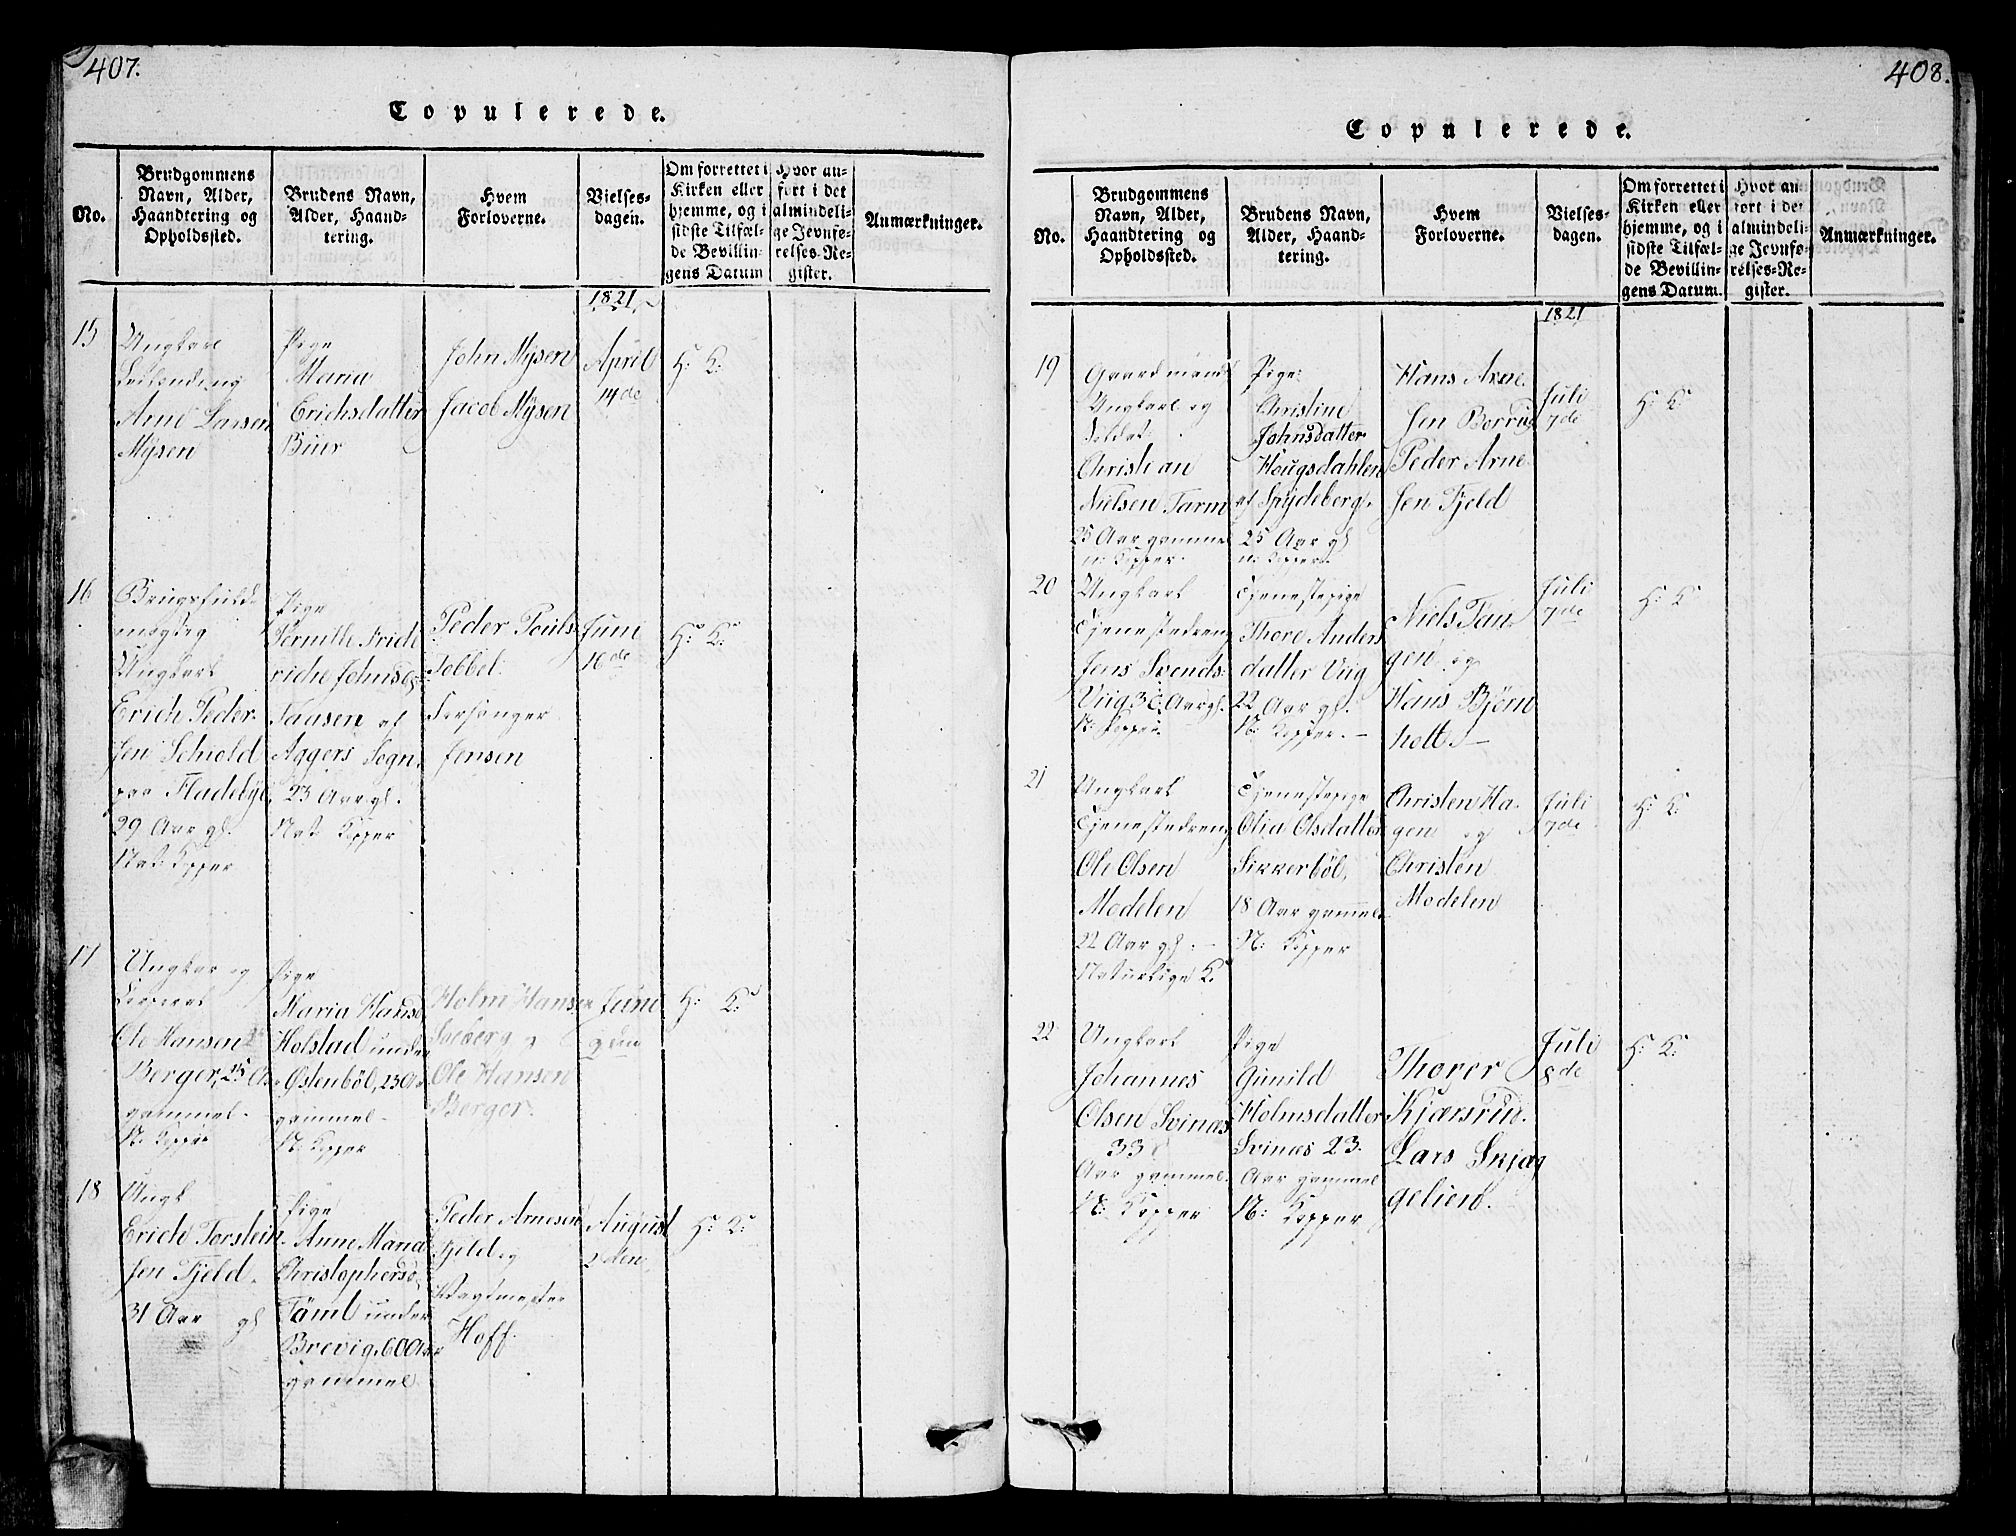 407.
Copulerede.
No.
Brudgommens
Navn, Alder,
Haandtering og
Opholdssted.
Brudens Navn,
Alder, Haand-
tering.
Hvem
Forloverne.
Vielses-
dagen.
Om forrettet i
Kirken eller
hjemme, og i
sidste Tilfæl-
de Bevillin-
gens Datum
Hvor an-
fort i det
almindeli-
ge Jevnfø-
relses-Re-
gister.
Anmærkninger.
1821
15
Ungkarl
Arne Larsen
Mysen
Pige
Maria
Erichsdatter
Buer
John Mysen
Jacob Mysen
April
14de
H: K:
16
Ungkarl
Erich Peder-
sen Schiold
paa Fladebye
29 Aar gl.
Nat: Kopper
Pige
riche Johnsd
Taasen af
Aggers Sogn
23 Aar gl.
Nat Kopper
Peder Pouls
Jensen
Juni
16de
H: K:
17
Ungkar og
Ole Hansen
Berger, 25 Aar
gammel
N: Kopper
Pige
Maria Hansd
Holstad under
Østenbøl, 23 Aar
gammel
N: Kopper
Holm Hansen
Ole Hansen
Berger.
Juni
9den
H: K:
18
Ungk
Erich Torstein-
sen Fjeld.
31 Aar gl
Pige
Anne Maria
Christophersd
Tømt under
Brevig, 60 Aar
gammel
Peder Arnesen
Fjeld og
Vagtmester
Hoff.
August
2den
H: K:
408.
Copulerede.
No.
Brudgommens
Navn, Alder,
Haandtering og
Opholdssted.
Brudens Navn,
Alder, Haand-
tering.
Hvem
Forloverne.
Vielses-
dagen.
Om forrettet i
Kirken eller
hjemme, og i
sidste Tilfæl-
de Bevillin-
gens Datum.
Hvor an-
fort i det
almindeli-
ge Jevnfø-
relses-Re-
gister.
Anmærkninger.
1821
19
Gaardmands
Ungkarl og
Soldat
Christian
Nielsen Tarm
25 Aar gammel
n: Kopper
Pige
Christine
Johnsdatter
Hougsdahlen
af Spydeberg.
25 Aar gl
n: Kopper
Hans Arne
sen Berrug
Peder Arne
sen Fjeld
Juli
7de
H: K:
20
Ungkarl
Tjenestedreng
Jens Svends:
Viig 30 Aar gl.
N: Kopper
Tjenestepige
Thore Anders
datter Viig
22 Aar gl.
N: Kopper.
Niels Tan
gen og
Hans Bjørn
holt.
Juli
7de
H: K
21
Ungkarl
Tjenestedreng
Ole Olsen
Modelen
22 Aar gl.
Naturlige K.
Tjenestepige
Olia Olsdatter
Sikkerbøl,
18 Aar gammel
N: Kopper
Christen Ha-
gen og
Christen
Modelen
Juli
7de
H: K:
22
Ungkarl
Johannes
Olsen Svinæs
33
Aar gammel.
N: Kopper
Pige
Gunild
Holmsdatter
Svinæs 23.
Aar gammel
N: Kopper
Thorer
Kjærsrud.
Lars Skjæg
gelien.
Juli
8de
H: K: